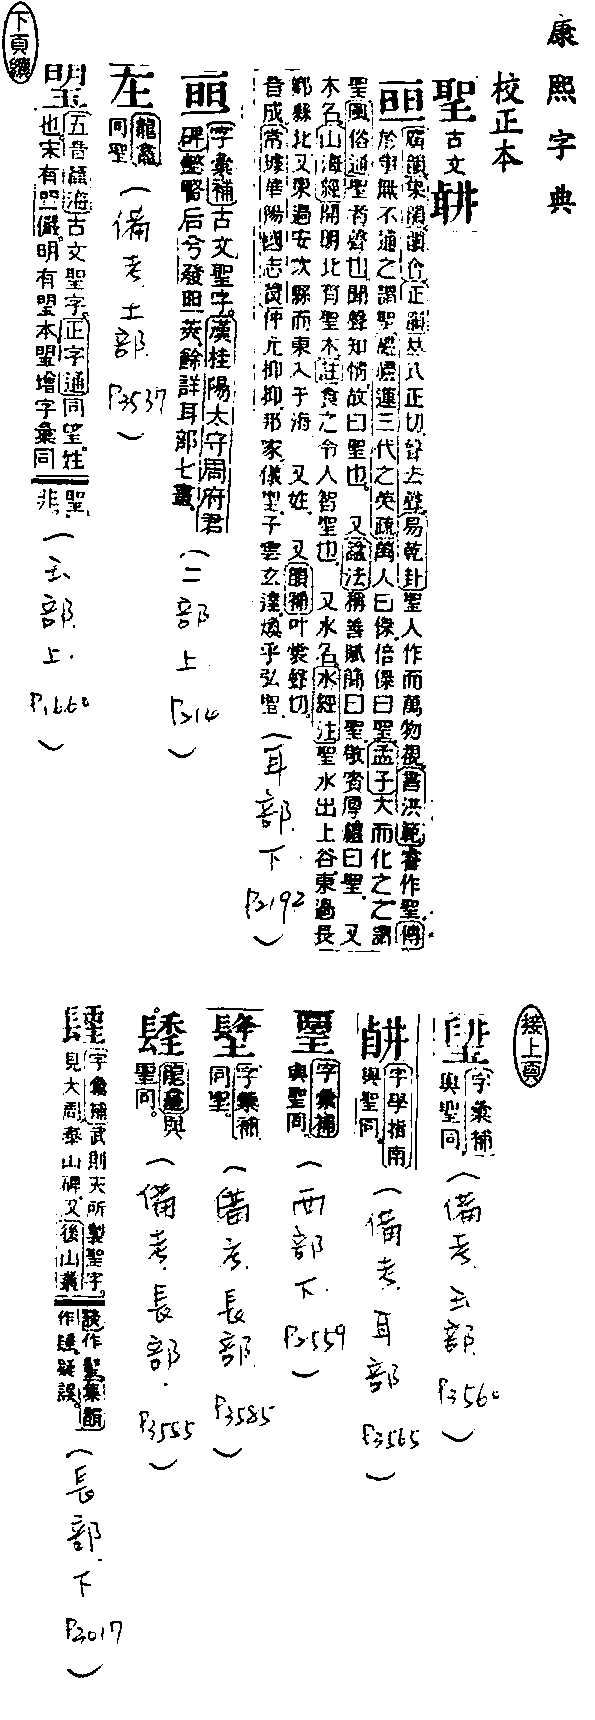 康熙字典
校正本
聖 古文
廣韻集韻韻會正韻 正切 易乾卦聖人作而萬物覩書洪範睿作聖傳
於事無不通之謂聖 三代之英疏萬人曰傑倍傑曰聖孟子大而化之之謂
聖風俗通聖者聲也聞聲知情故曰聖也 又諡法稱善賦簡曰聖敬賓厚禮曰聖 又
木名山海經開明北有聖木註食之令人智聖也 又水名水經注聖水出上谷東過長
鄉縣北又東過安次縣而東入于海 又姓 又韻補叶 切
音成常璩華陽國志 仲元抑抑邦家儀聖子雲玄達煥乎弘聖
(耳部下 P2192)
字彙補古文聖字漢桂陽太守周府君
碑 后兮發 英餘詳耳部七畫
(二部上 P210)
龍龕
同聖
(備考土部 P3537)
五音篇海古文聖字正字通同望姓
也宋有 儼明有 本 增字彙同聖
非
(玉部上 P1660)
下頁續
接上頁
字彙補
與聖同
(備考玉部 P3560)
字學指南
與聖同
(備考耳部 P3565)
字彙補
與聖同
(西部下 P2559)
字彙補
同聖
(備考長部 P3585)
龍龕與
聖同
(備考長部 P3585)
字彙補武則天所製聖字
見大周泰山碑又後山叢
談作 集韻
作 疑誤
(長部下 P3017)